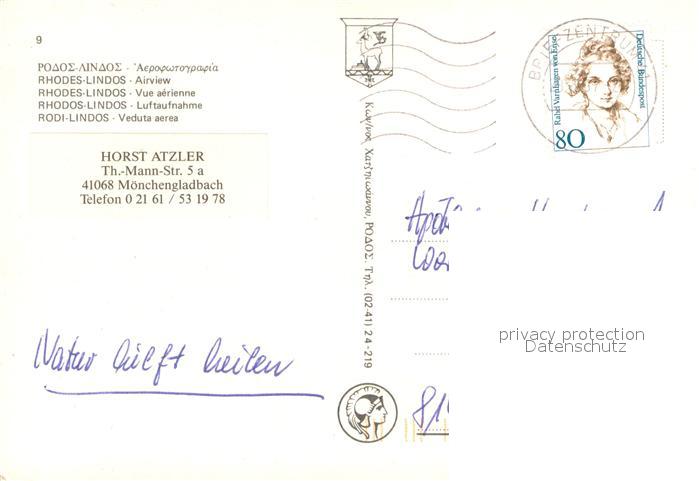 9
ΡΟΔΟΣ-ΛΙΝΔΟΣ - Ἀεροφωτογραφία
RHODES-LINDOS - Airview
RHODES-LINDOS - Vue aérienne
RHODOS-LINDOS - Luftaufnahme
RODI-LINDOS - Veduta aerea
HORST ATZLER
Th.-Mann-Str. 5 a
41068 Mönchengladbach
Telefon 0 21 61 / 53 19 78
Natur hilft heilen
Κων/νος Χατζηιωάννου, ΡΟΔΟΣ. Τηλ. (02-41) 24-219
BRIEFZENTRUM
Rahel Varnhagen von Ense
Deutsche Bundespost
80
privacy protection
Datenschutz